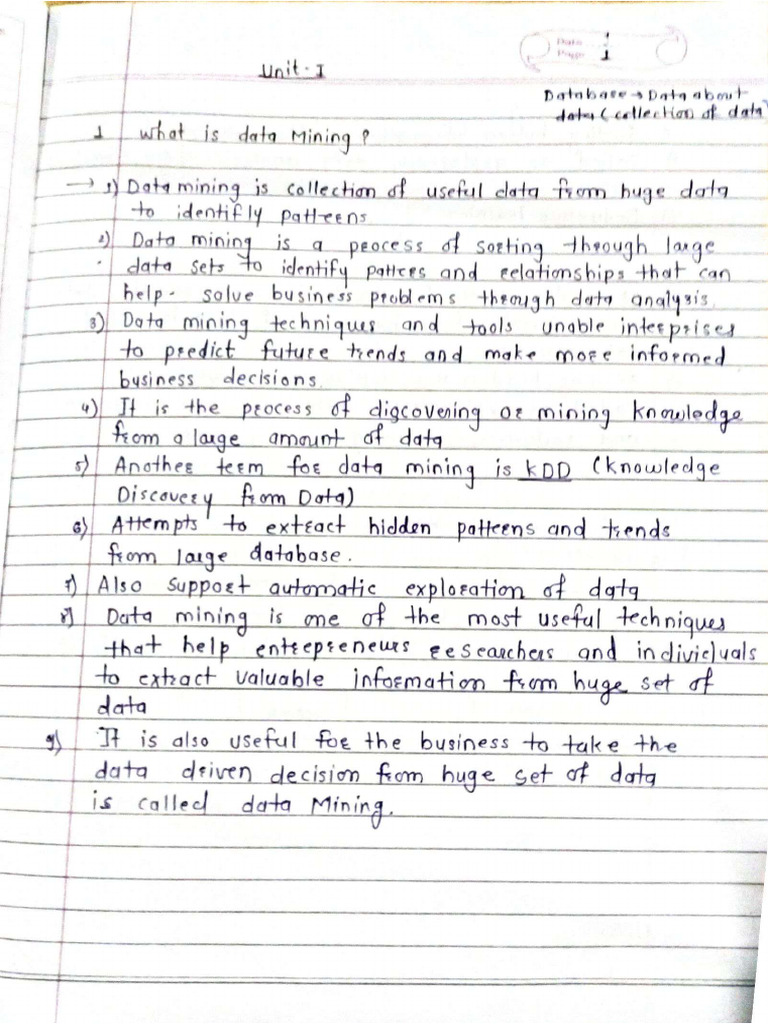 Date
Page 1
Unit - I
Database → Data about
data (collection of data)
1 what is data Mining?
→ 1) Data mining is collection of useful data from huge data
to identifly patterens
2) Data mining is a process of sorting through large
data sets to identify pattres and relationships that can
help - solve business problems through data analysis.
3) Data mining techniques and tools unable interprises
to predict future trends and make more informed
business decisions.
4) It is the process of discovering or mining knowledge
from a large amount of data
5) Another term for data mining is KDD (knowledge
Discovery from Data)
6) Attempts to extract hidden patterens and trends
from large database.
7) Also support automatic exploration of data
8) Data mining is one of the most useful techniques
that help entrepreneurs researchers and individuals
to extract valuable information from huge set of
data
9) It is also useful for the business to take the
data driven decision from huge set of data
is called data Mining.